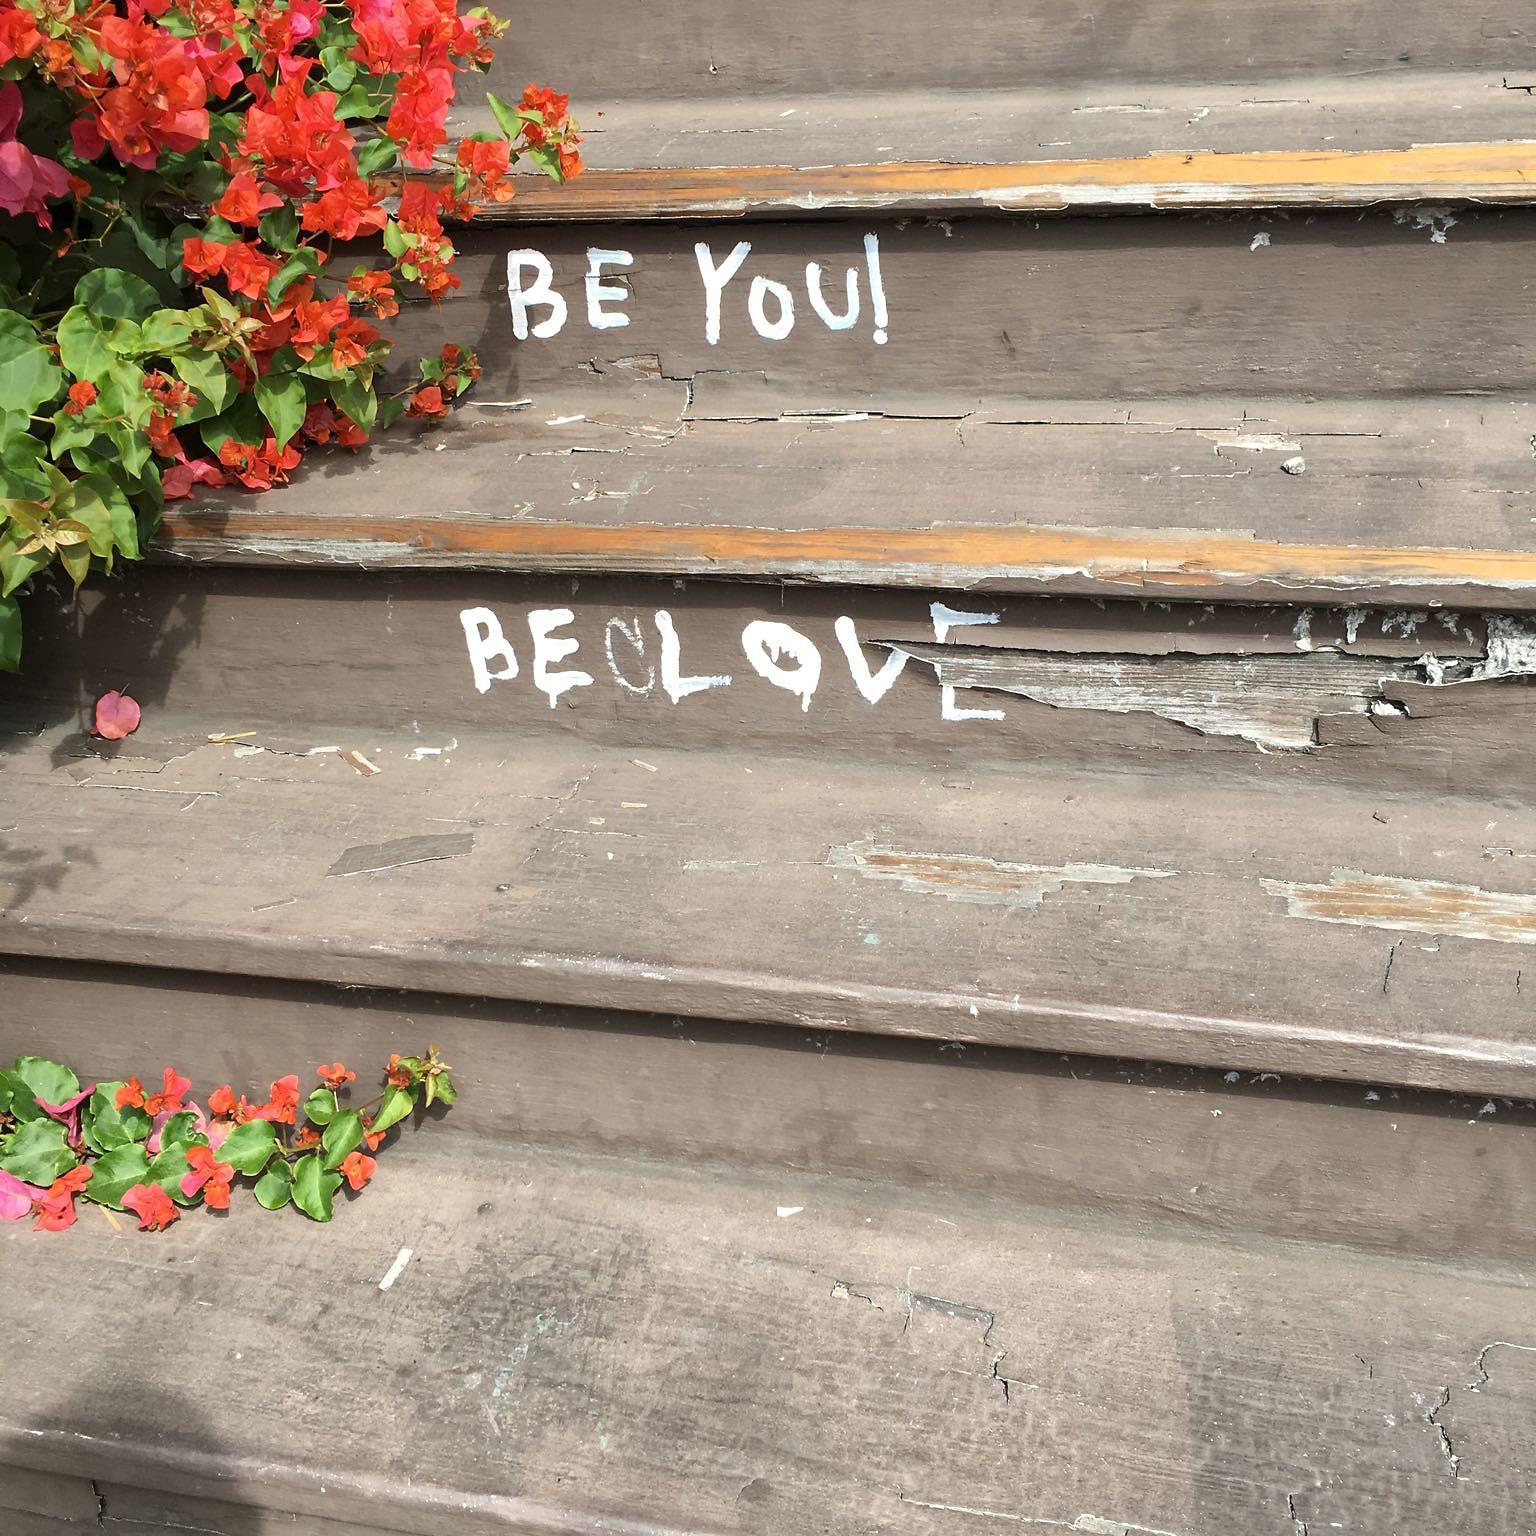 BE YOU!
BECLOVE